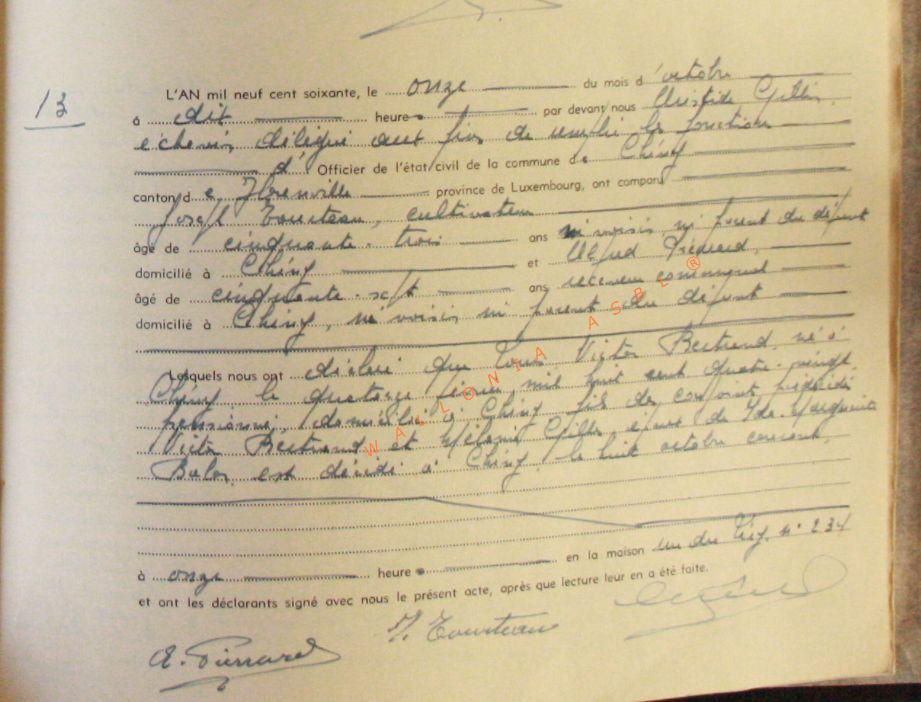 13
L'AN mil neuf cent soixante, le onze du mois d'octobre
à dix heures par devant nous Gillin,
échevin délégué aux fins de remplir les fonctions
d' Officier de l'état/civil de la commune de Chiny
canton de Florenville province de Luxembourg, ont comparu
Joseph Tourteau, cultivateur
âgé de cinquante-trois ans ni voisin, ni parent du défunt
domicilié à Chiny et Alfred Piérard,
âgé de cinquante-sept ans receveur communal
domicilié à Chiny, ni voisin, ni parent du défunt
Lesquels nous ont déclaré que Victor Bertrand, né à
Chiny le quatorze février mil huit cent quatre-vingt
pensionné, domicilié à Chiny, fils des conjoints prédécédés
Victor Bertrand et Mélanie Gillet, époux de Ida Marguerite
est décédé à Chiny, le huit octobre courant,
à onze heures en la maison rue du n° 234
et ont les déclarants signé avec nous le présent acte, après que lecture leur en a été faite.
A. Piérard J. Tourteau
WALLONIA ASBL ®